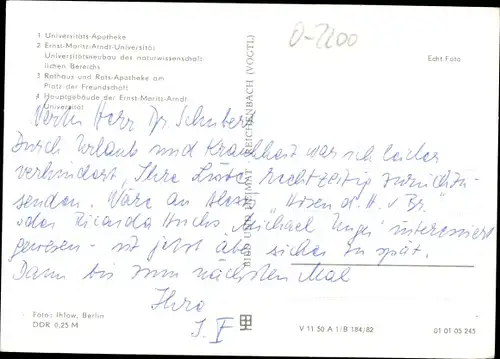 1 Universitäts-Apotheke
2 Ernst-Moritz-Arndt-Universität
Universitätsneubau des naturwissenschaft-
lichen Bereichs
3 Rathaus und Rats-Apotheke am
Platz der Freundschaft
4 Hauptgebäude der Ernst-Moritz-Arndt-
Universität
O-2200
Echt Foto
Herr Dr. Schubert
Durch Urlaub und Krankheit war ich leider
verhindert, Ihre Liste rechtzeitig zurückzu-
senden. Wäre an "Hosen d. H. v Br."
oder Ricarda Huchs "Michael Unger" interessiert
gewesen - ist jetzt aber sicher zu spät.
Dann bis zum nächsten Mal
Ihre
I. F
BILD UND HEIMAT REICHENBACH (VOGTL)
Foto: Ihlow, Berlin
DDR 0,25 M
V 11 50 A 1/B 184/82
01 01 05 245